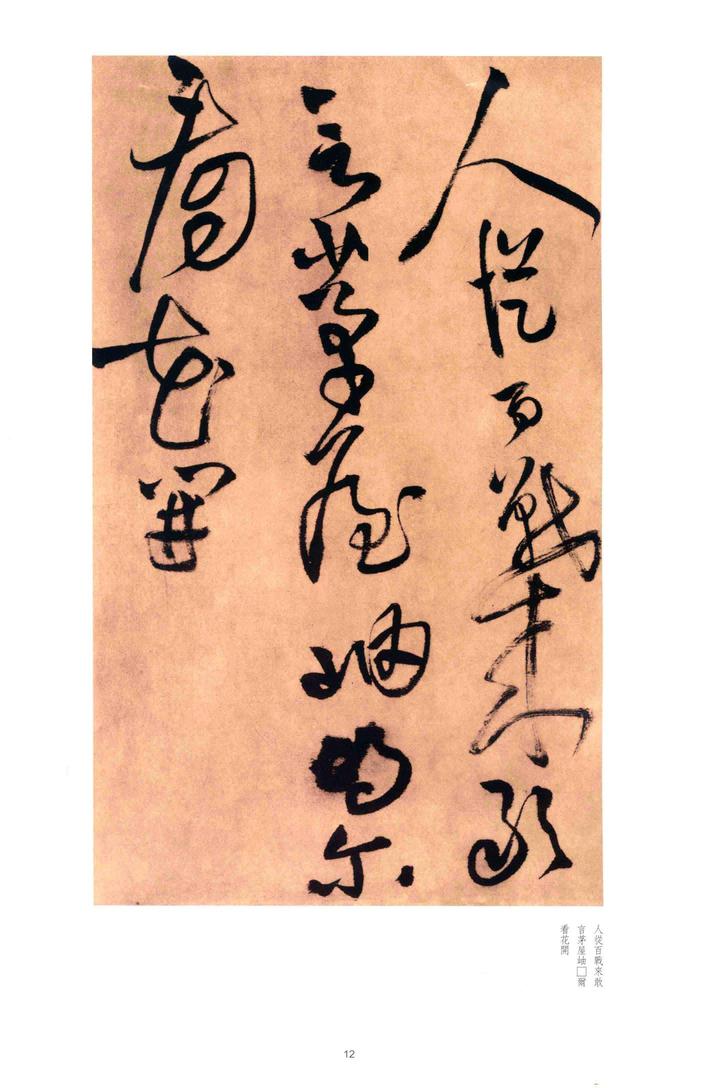 人從百戰來敢
言茅屋爾
看花開
人從百戰來敢
言茅屋岫□爾
看花開
12